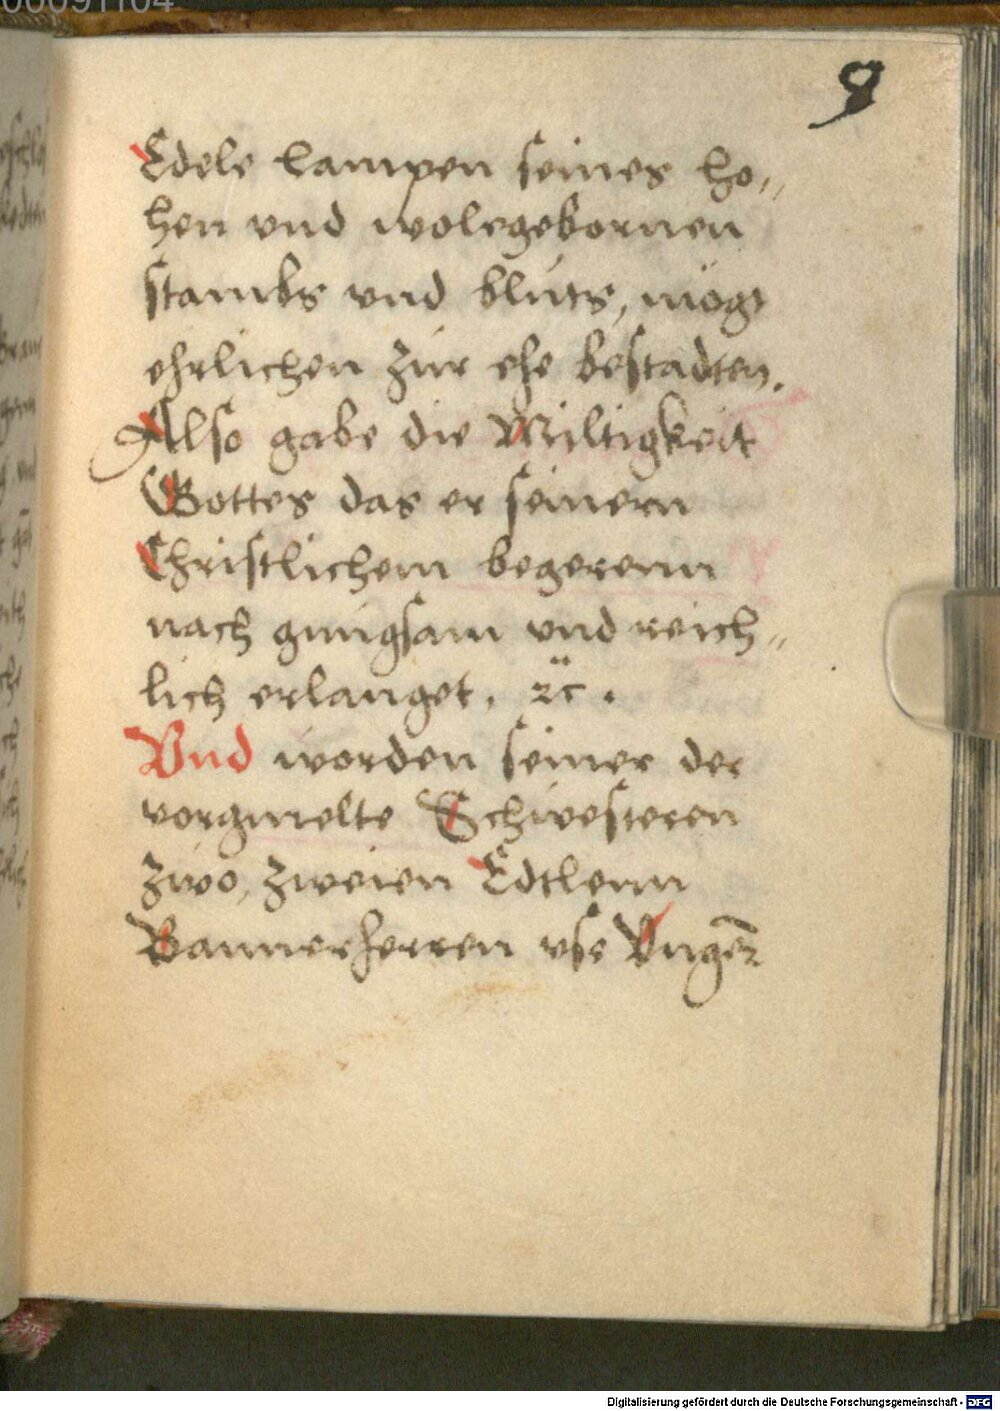 00091104
8
Edele lampen seines ho„
hen vnd wolegebornen
stambs vnd blúts, möge
ehrlichen zúr ehe bestadten.
Also gabe die Miltigkeit
Gottes das er seinem
Christlichem begerenn
nach gnúgsam vnd reich„
lich erlanget. ꝛc̈.
Vnd worden seiner der
vorgmelte Schwesteren
zwo, zweien Edtlenn
Bannerherren vse Vnger̄
Digitalisierung gefördert durch die Deutsche Forschungsgemeinschaft - DFG